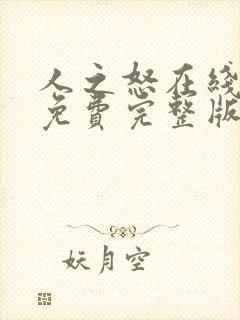 人之怒在线
免费完整版
妖月空